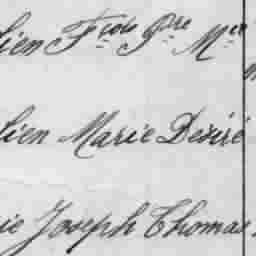 lien Fçois Pre Mce
lien Marie Desiré
ie Joseph Thomas